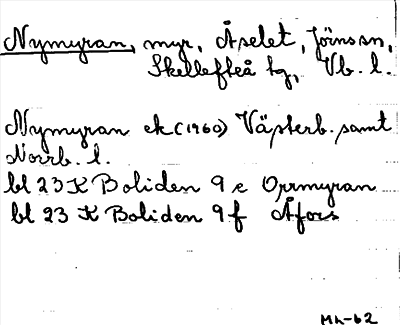 Nymyran, myr, Åselet, Jörns sn,
Skellefteå tg, Vb. l.
Nymyran ek (1960) Västerb. samt
Norrb. l.
bl 23 K Boliden 9 e Orrmyran
bl 23 K Boliden 9 f Åfors
Mh-62